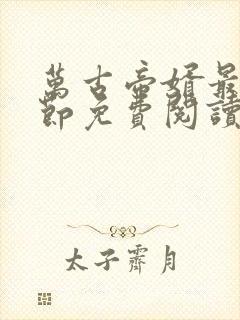 萬古帝婿最
節免費閱讀
太子霽月